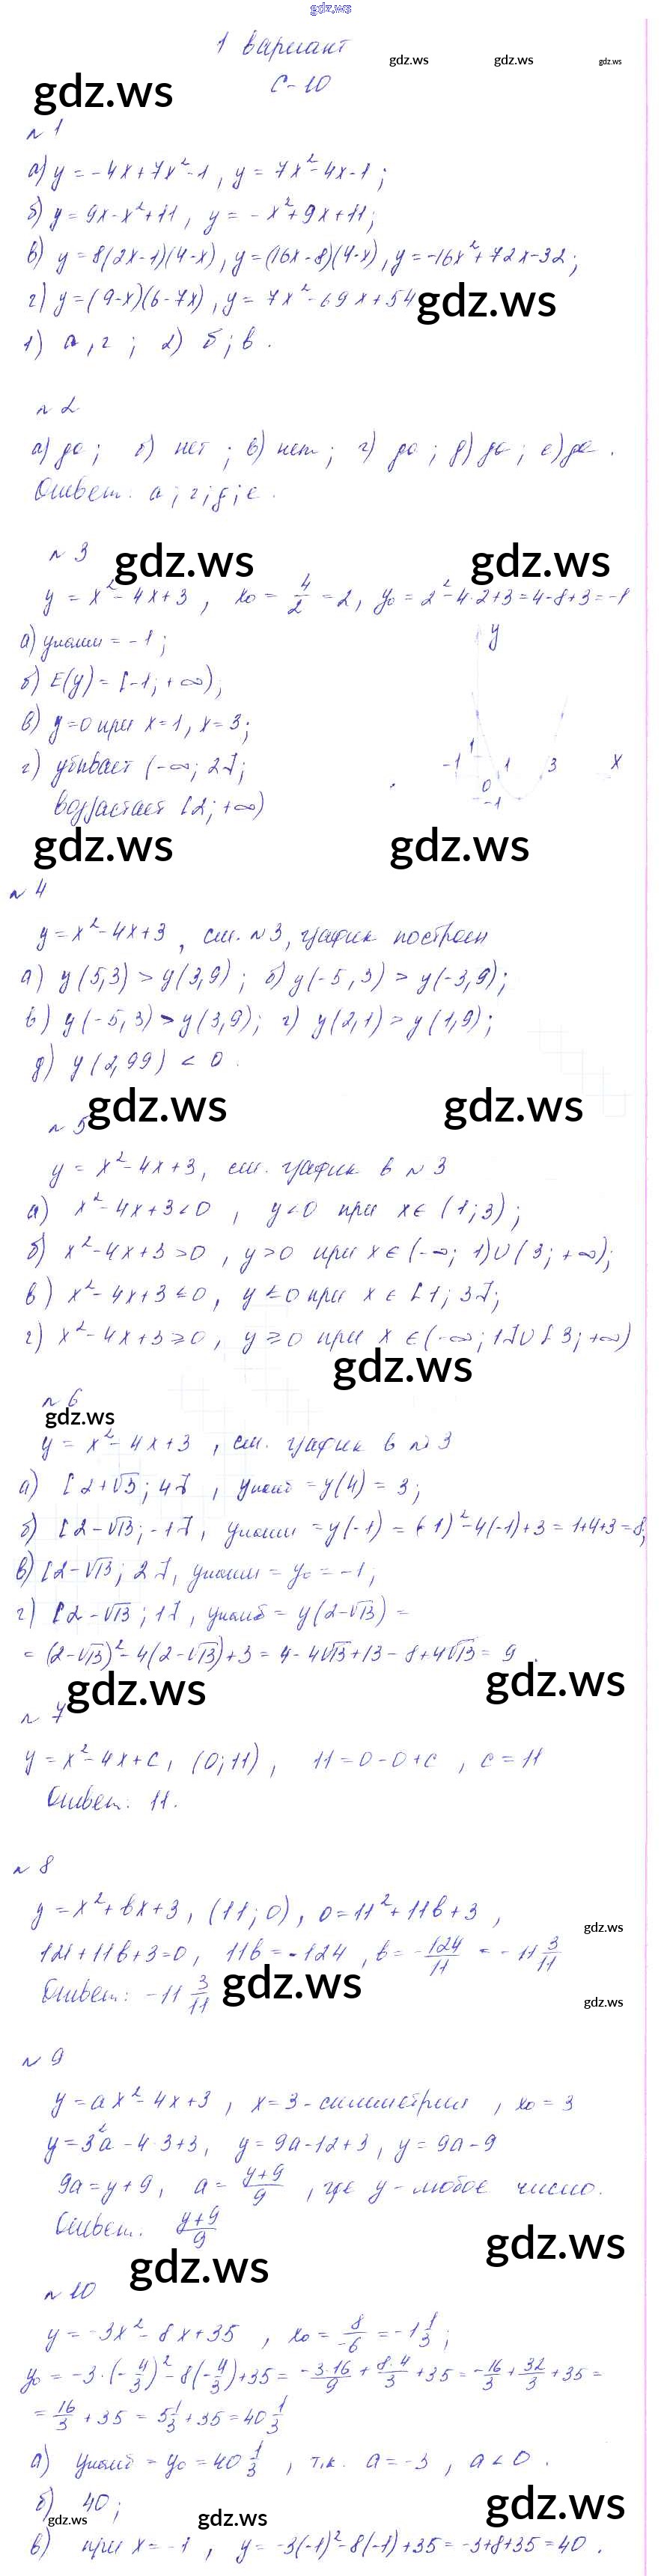 gdz.ws
1 вариант
gdz.ws gdz.ws gdz.ws
С-10
gdz.ws
№1
а) y = -4x+7x²-1, y = 7x²-4x-1;
б) y = 9x-x²+11, y = -x²+9x+11;
в) y = 8(2x-1)(4-x), y = (16x-8)(4-x), y = -16x²+72x-32;
г) y = (9-x)(6-7x), y = 7x²-69x+54
gdz.ws
1) а, г; 2) б; в.
№2
а) да; б) нет; в) нет; г) да; д) да; е) да.
Ответ: а; г; д; е.
№3
gdz.ws gdz.ws
y = x²-4x+3, x₀ = 4/2 = 2, y₀ = 2²-4·2+3=4-8+3=-1
а) yнаим = -1;
б) E(y) = [-1; +∞);
в) y=0 при x=1, x=3;
г) убывает (-∞; 2];
возрастает [2; +∞)
y
1
-1 0 1 3 x
-1
gdz.ws gdz.ws
№4
y = x²-4x+3, см. №3, график построен
а) y(5,3) > y(3,9); б) y(-5,3) > y(-3,9);
в) y(-5,3) > y(3,9); г) y(2,1) > y(1,9);
д) y(2,99) < 0.
gdz.ws gdz.ws
№5
y = x²-4x+3, см. график в №3
а) x²-4x+3<0, y<0 при x∈(1;3);
б) x²-4x+3>0, y>0 при x∈(-∞; 1)∪(3; +∞);
в) x²-4x+3≤0, y≤0 при x∈[1; 3];
г) x²-4x+3≥0, y≥0 при x∈(-∞; 1]∪[3; +∞)
gdz.ws
№6
gdz.ws
y = x²-4x+3, см. график в №3
а) [2+√3; 4], yнаиб = y(4) = 3;
б) [2-√13; -1], yнаим = y(-1) = (-1)²-4(-1)+3 = 1+4+3=8;
в) [2-√13; 2], yнаим = y₀ = -1;
г) [2-√13; 1], yнаиб = y(2-√13) =
= (2-√13)²-4(2-√13)+3 = 4-4√13+13-8+4√13 = 9.
gdz.ws gdz.ws
№7
y = x²-4x+c, (0; 11), 11=0-0+c, c = 11
Ответ: 11.
№8
y = x²+bx+3, (11; 0), 0=11²+11b+3,
gdz.ws
121+11b+3=0, 11b = -124, b = -124/11 = -11 3/11
gdz.ws
Ответ: -11 3/11
gdz.ws
№9
y = ax²-4x+3, x=3 - симметрия, x₀ = 3
y = 3²a-4·3+3, y = 9a-12+3, y = 9a-9
9a = y+9, a = (y+9)/9, где y - любое число.
Ответ: (y+9)/9
gdz.ws
gdz.ws
№10
y = -3x²-8x+35, x₀ = 8/-6 = -1 1/3;
y₀ = -3·(-4/3)²-8(-4/3)+35 = -3·16/9 + 8·4/3 +35 = -16/3 + 32/3 +35 =
= 16/3 + 35 = 5 1/3 + 35 = 40 1/3
а) yнаиб = y₀ = 40 1/3, т.к. a = -3, a < 0.
б) 40;
gdz.ws gdz.ws gdz.ws
в) при x = -1, y = -3(-1)²-8(-1)+35 = -3+8+35 = 40.